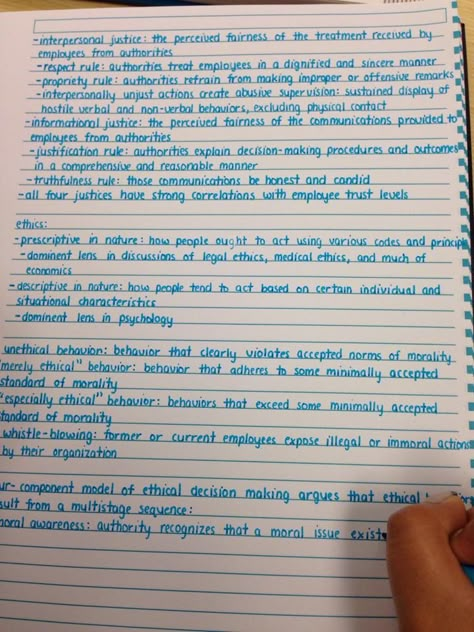 -interpersonal justice: the perceived fairness of the treatment received by
employees from authorities
-respect rule: authorities treat employees in a dignified and sincere manner
-propriety rule: authorities refrain from making improper or offensive remarks
-interpersonally unjust actions create abusive supervision: sustained display of
hostile verbal and non-verbal behaviors, excluding physical contact
-informational justice: the perceived fairness of the communications provided to
employees from authorities
-justification rule: authorities explain decision-making procedures and outcomes
in a comprehensive and reasonable manner
-truthfulness rule: those communications be honest and candid
-all four justices have strong correlations with employee trust levels
ethics:
-prescriptive in nature: how people ought to act using various codes and princip
-dominent lens in discussions of legal ethics, medical ethics, and much of
economics
-descriptive in nature: how people tend to act based on certain individual and
situational characteristics
-dominent lens in psychology
unethical behavior: behavior that clearly violates accepted norms of morality
"merely ethical" behavior: behavior that adheres to some minimally accepted
standard of morality
"especially ethical" behavior: behaviors that exceed some minimally accepted
tandard of morality
whistle-blowing: former or current employees expose illegal or immoral actions
by their organization
ur-component model of ethical decision making argues that ethical
sult from a multistage sequence:
noral awareness: authority recognizes that a moral issue exists